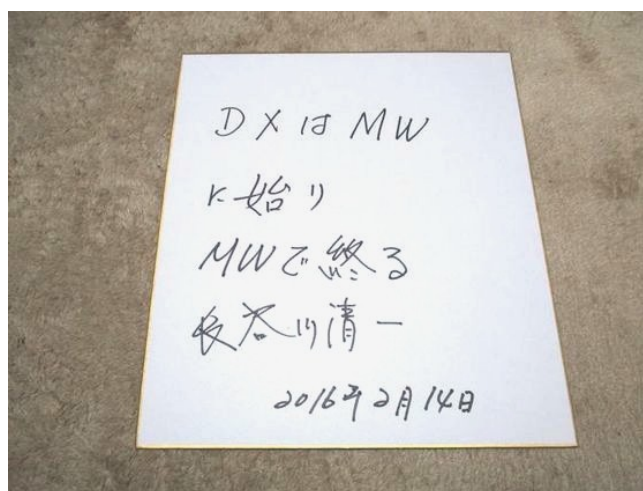 DXはMW
に始り
MWで終る
長谷川清一
2016年2月14日